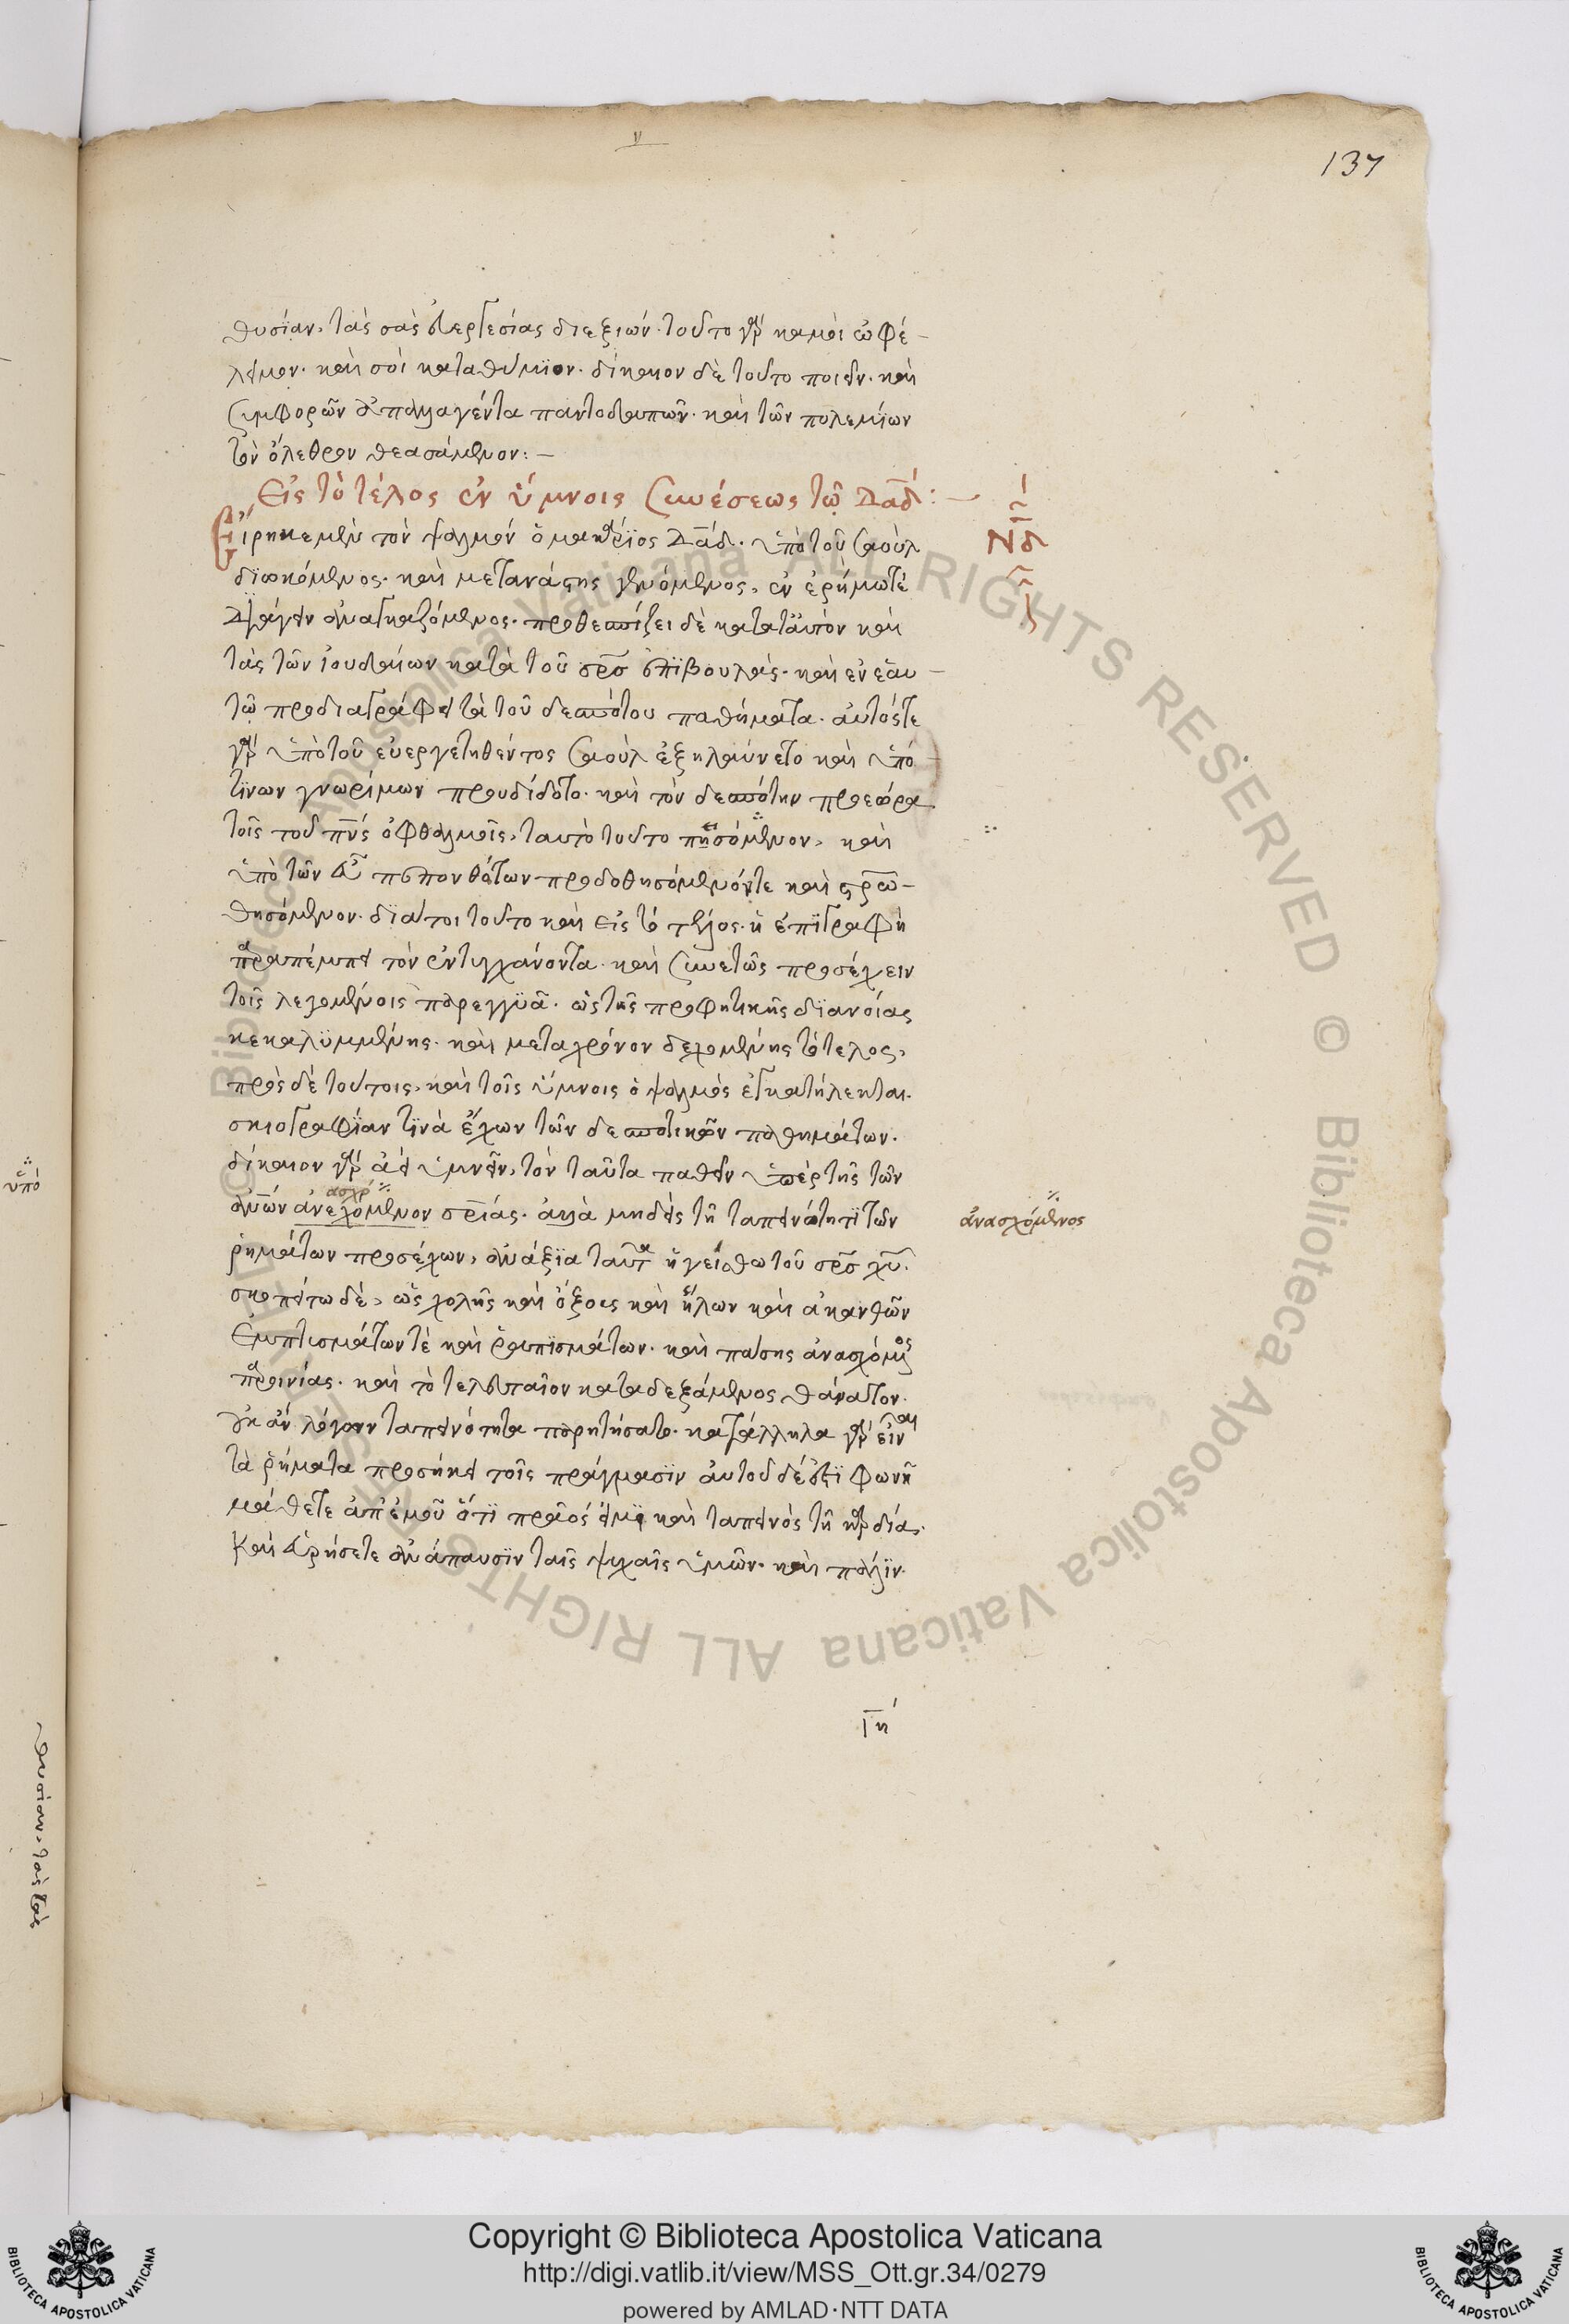 137
θυσίαν, τὰς σὰς εὐεργεσίας διεξιών· τοῦτο γὰρ κᾀμοὶ ὠφέ-
λιμον· καὶ σοὶ καταθύμιον· δίκαιον δὲ τοῦτο ποιεῖν· καὶ
συμφορῶν ἀπαλλαγέντα παντοδαπῶν· καὶ τῶν πολεμίων
τὸν ὄλεθρον θεασάμενον:-
Εἰς τὸ τέλος ἐν ὕμνοις συνέσεως τῷ Δαδ:-
Εἴρηκε μὲν τὸν ψαλμὸν ὁ μακάριος Δαδ· ὑπὸ τοῦ Σαοὺλ
διωκόμενος· καὶ μετανάστης γενόμενος, ἐν ἐρήμω τὲ
διάγειν ἀναγκαζόμενος· προθεσπίζει δὲ κατὰ ταυτὸν καὶ
τὰς τῶν ἰουδαίων κατὰ τοῦ σρσ ἐπϊβουλάς· καὶ ἐν ἑαυ-
τῶ προδιαγράφει τὰ τοῦ δεσπότου παθήματα· αὐτός τε
γὰρ ὑπὸ τοῦ εὐεργετηθέντος Σαοὺλ ἐξηλαύνετο καὶ ὑπό
τινων γνωρίμων προυδίδοτο· καὶ τὸν δεσπότην προεώρα
τοῖς τοῦ πνς ὀφθαλμοῖς, ταυτὸ τοῦτο πεισόμενον, καὶ
ὑπὸ τῶν εὖ πεπονθότων προδοθησόμενόν τε καὶ σρω-
θησόμενον· διάτοι τοῦτο καὶ εἰς τὸ τέλος· ἡ ἐπϊγραφὴ
παραπέμπει τὸν ἐντυγχάνοντα· καὶ συνετῶς προσέχειν
τοῖς λεγομένοις παρεγγυᾶ· ὡς τῆς προφητικῆς διανοίας
κεκαλϋμμένης· καὶ μετὰ χρόνον δεχομένης τὸ τελος,
πρὸς δὲ τούτοις, καὶ τοῖς ὕμνοις ὁ ψαλμὸς ἐγκατήλεκται·
σκιογραφίαν τϊνὰ ἔχων τῶν δεσποτικῶν παθημάτων·
δίκαιον γὰρ ἀεὶ ὑμνεῖν, τὸν ταῦτα παθεῖν ὑπὲρ τῆς τῶν
ασχό
ανων ἀνεχόμενον σριας· ἀλλὰ μηδεὶς τῆ ταπεινότητϊ τῶν
ἀνασχόμενος
ῥημάτων προσέχων, ἀνάξια ταῦτα ἡγείσθω τοῦ σρσ χυ·
σκοπείτω δὲ, ὡς χολῆς καὶ ὄξους καὶ ἥλων καὶ ἀκανθῶν
ἐμπτυσμάτων τὲ καὶ ῥαπϊσμάτων· καὶ πάσης ἀνασχόμενος
παροινίας· καὶ τὸ τελευταῖον καταδεξάμενος θάνατον·
οὐκ ἂν λόγων ταπεινότητα παρητήσατο· κατάλληλα γὰρ εἶναι
τὰ ῥήματα προσήκει τοῖς πράγμασϊν αὐτοῦ δέ ἐστϊ φωνὴ
μάθετε ἀπ' ἐμοῦ ὅτϊ πρᾶος εἰμϊ καὶ ταπεινὸς τῆ καρδία·
καὶ εὑρήσετε ἀνάπαυσϊν ταῖς ψυχαῖς ὑμῶν· καὶ πάλϊν·
ὑπό
Copyright © Biblioteca Apostolica Vaticana
http://digi.vatlib.it/view/MSS_Ott.gr.34/0279
powered by AMLAD·NTT DATA